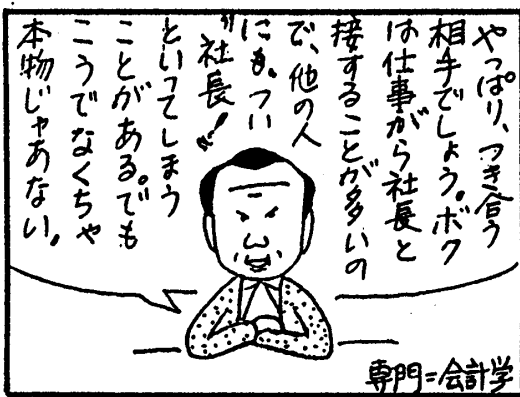 やっぱり、つき合う
相手でしょう。ボク
は仕事がら社長と
接することが多いの
で、他の人
にも。つい
"社長!"
といってしまう
ことがある。でも
こうでなくちゃ
本物じゃあない。
専門=会計学